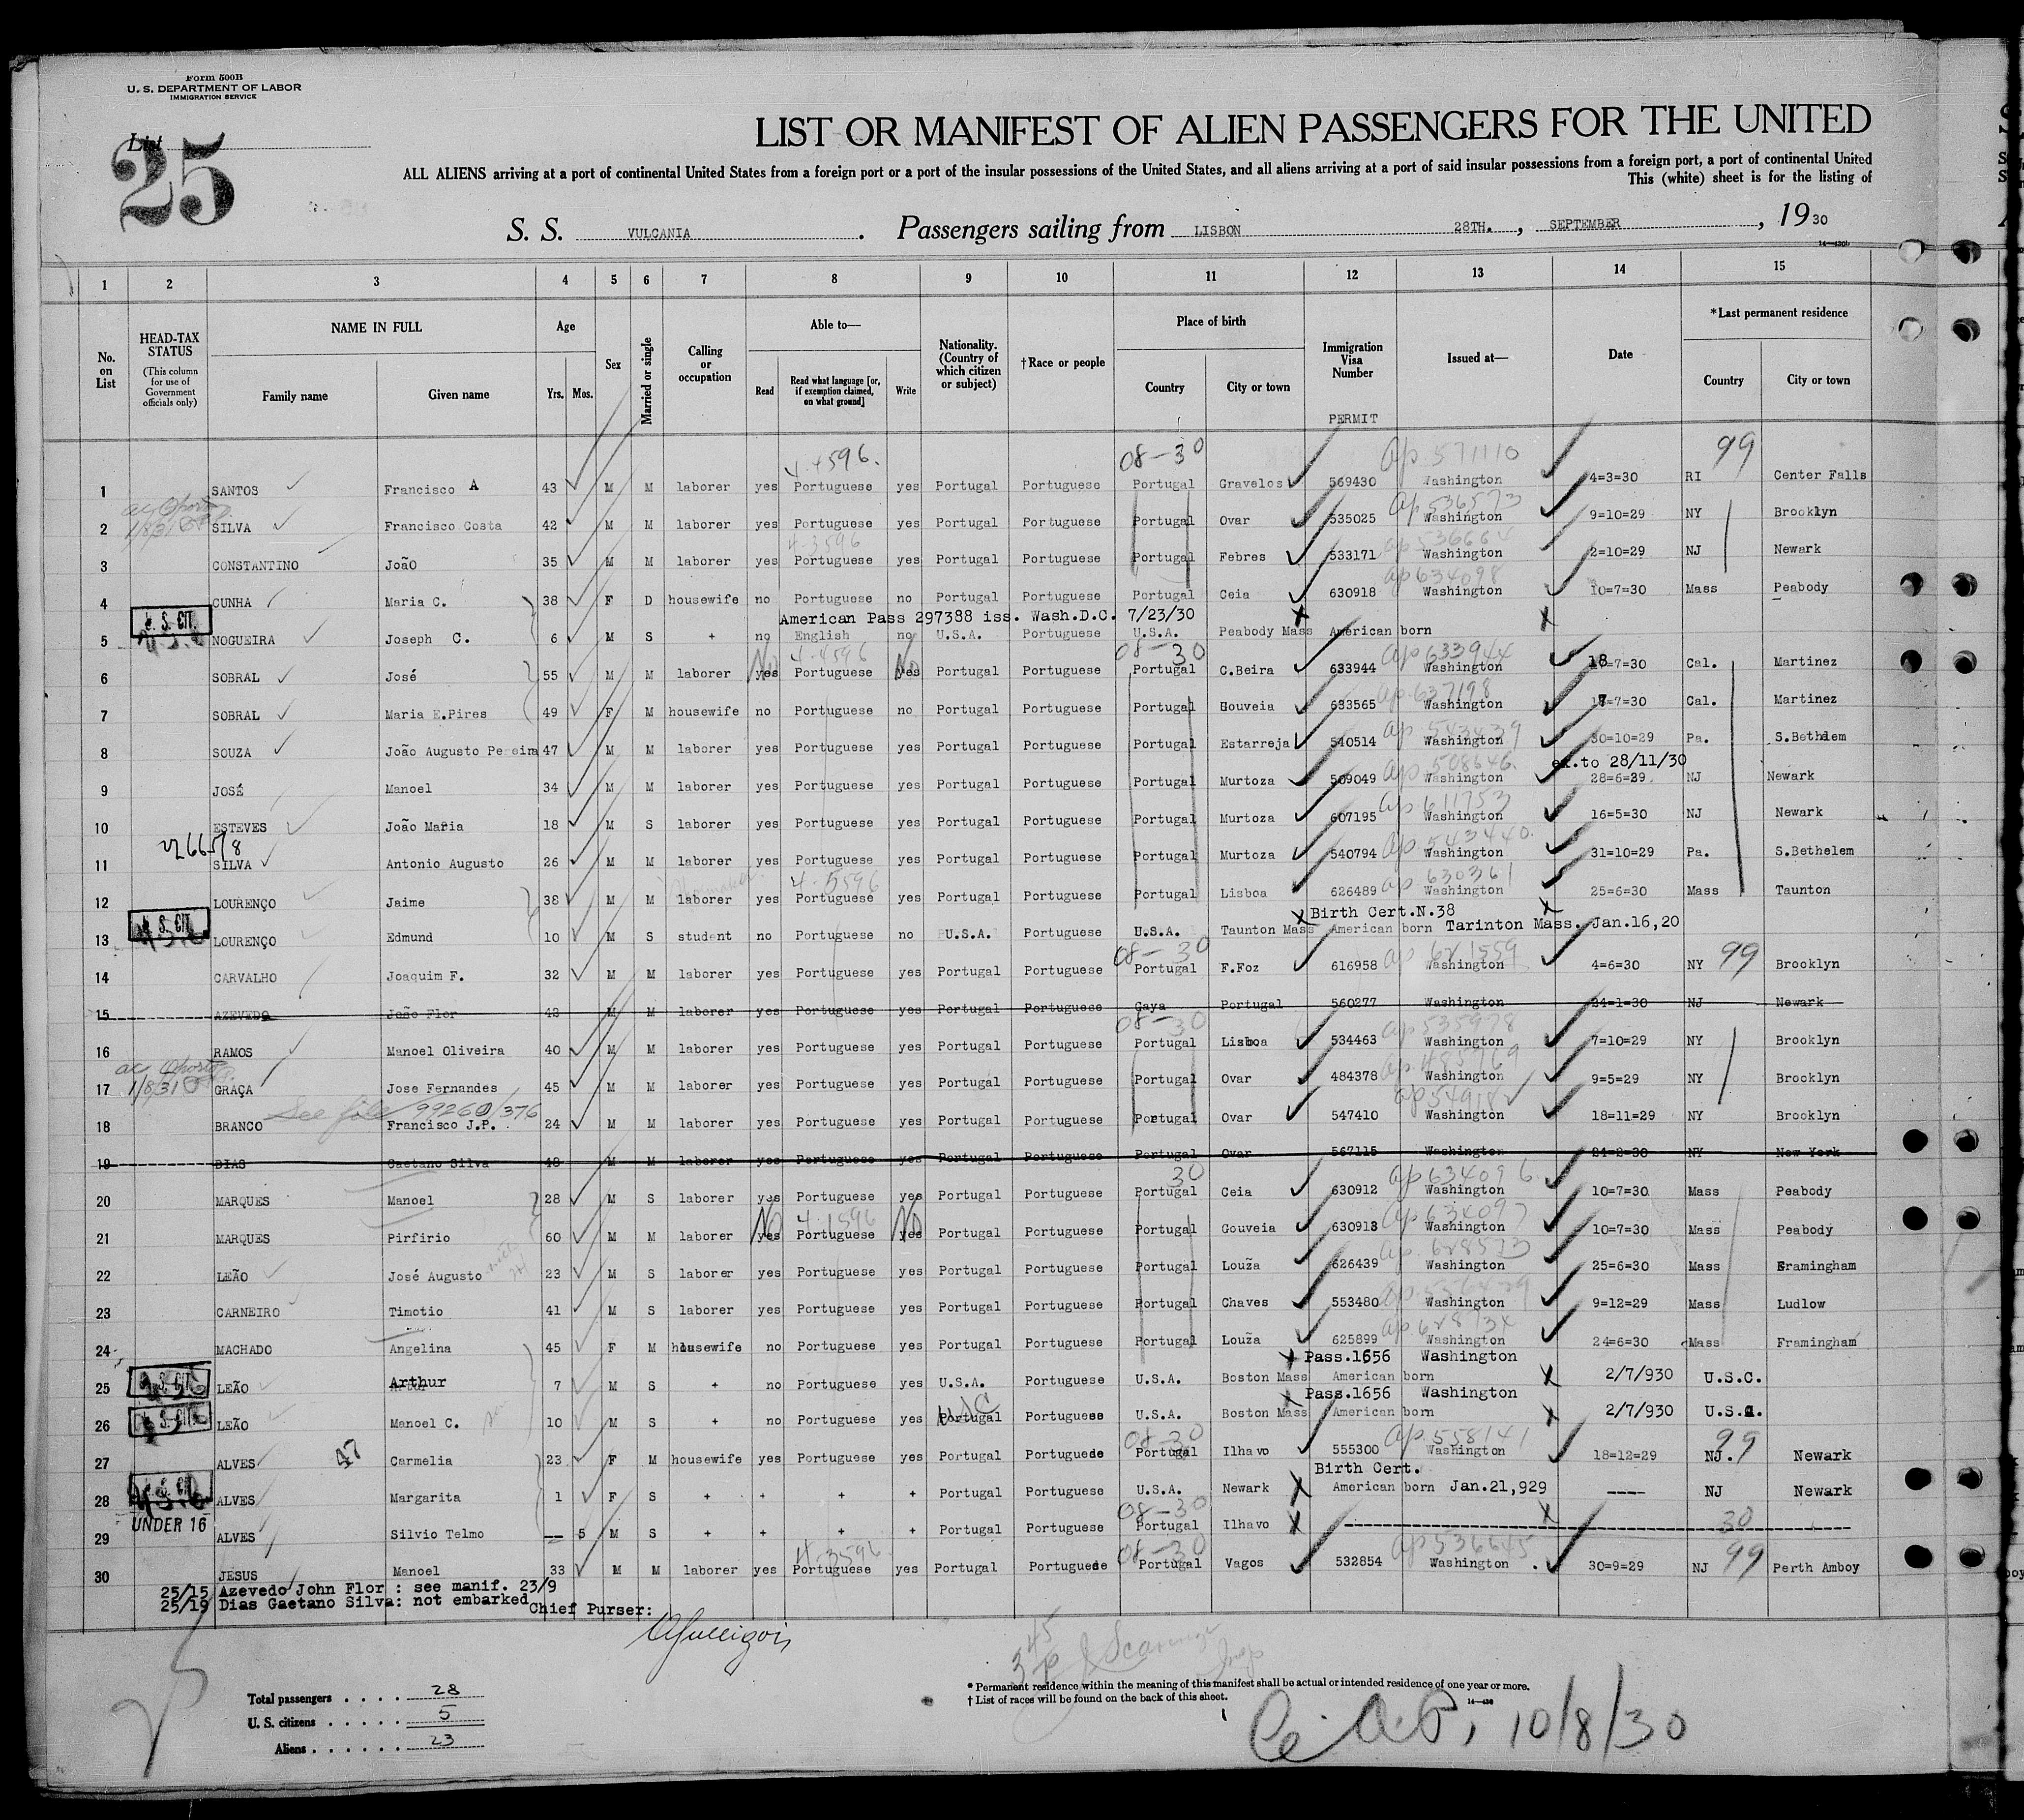 Form 500B
U. S. DEPARTMENT OF LABOR
IMMIGRATION SERVICE
List
25
LIST OR MANIFEST OF ALIEN PASSENGERS FOR THE UNITED
ALL ALIENS arriving at a port of continental United States from a foreign port or a port of the insular possessions of the United States, and all aliens arriving at a port of said insular possessions from a foreign port, a port of continental United
This (white) sheet is for the listing of
S. S. VULCANIA. Passengers sailing from LISBON 28TH., SEPTEMBER, 1930
1 2 3 4 5 6 7 8 9 10 11 12 13 14 15
No. on List
HEAD-TAX STATUS (This column for use of Government officials only)
NAME IN FULL
Family name Given name
Age
Yrs. Mos.
Sex
Married or single
Calling or occupation
Able to—
Read Read what language [or, if exemption claimed, on what ground] Write
Nationality. (Country of which citizen or subject)
†Race or people
Place of birth
Country City or town
Immigration Visa Number
PERMIT
Issued at—
Date
*Last permanent residence
Country City or town
4-4596. 08-30 ap 571110 99
1 SANTOS Francisco A 43 M M laborer yes Portuguese yes Portugal Portuguese Portugal Gravelos 569430 Washington 4=3=30 RI Center Falls
1/8/31 ap 536573
2 SILVA Francisco Costa 42 M M laborer yes Portuguese yes Portugal Portuguese Portugal Ovar 535025 Washington 9=10=29 NY Brooklyn
4-3596 ap 536664
3 CONSTANTINO João 35 M M laborer yes Portuguese yes Portugal Portuguese Portugal Febres 533171 Washington 2=10=29 NJ Newark
ap 634098
4 CUNHA Maria C. 38 F D housewife no Portuguese no Portugal Portuguese Portugal Ceia 630918 Washington 10=7=30 Mass Peabody
U. S. CIT. American Pass 297388 iss. Wash.D.C. 7/23/30
5 NOGUEIRA Joseph C. 6 M S + no English no U.S.A. Portuguese U.S.A. Peabody Mass American born
No 4-4596 No 08-30 ap 633944
6 SOBRAL José 55 M M laborer yes Portuguese yes Portugal Portuguese Portugal C.Beira 633944 Washington 18=7=30 Cal. Martinez
ap. 637198
7 SOBRAL Maria E.Pires 49 F M housewife no Portuguese no Portugal Portuguese Portugal Gouveia 633565 Washington 17=7=30 Cal. Martinez
ap 543439
8 SOUZA João Augusto Pereira 47 M M laborer yes Portuguese yes Portugal Portuguese Portugal Estarreja 540514 Washington 30=10=29 Pa. S.Bethlem
ap 508646. ex.to 28/11/30
9 JOSÉ Manoel 34 M M laborer yes Portuguese yes Portugal Portuguese Portugal Murtoza 509049 Washington 28=6=29 NJ Newark
ap 611753
10 ESTEVES João Maria 18 M S laborer yes Portuguese yes Portugal Portuguese Portugal Murtoza 607195 Washington 16=5=30 NJ Newark
ap 543440.
11 SILVA Antonio Augusto 26 M M laborer yes Portuguese yes Portugal Portuguese Portugal Murtoza 540794 Washington 31=10=29 Pa. S.Bethelem
4-5596 ap 630361
12 LOURENÇO Jaime 38 M M laborer yes Portuguese yes Portugal Portuguese Portugal Lisboa 626489 Washington 25=6=30 Mass Taunton
U. S. CIT. Birth Cert.N.38
13 LOURENÇO Edmund 10 M S student no Portuguese no U.S.A. Portuguese U.S.A. Taunton Mass American born Tarinton Mass. Jan.16,20
08-30 ap 621559
14 CARVALHO Joaquim F. 32 M M laborer yes Portuguese yes Portugal Portuguese Portugal F.Foz 616958 Washington 4=6=30 NY 99 Brooklyn
15 AZEVEDO João Flor 42 M M laborer yes Portuguese yes Portugal Portuguese Gaya Portugal 560277 Washington 24=1=30 NJ Newark
08-30 ap 535978
16 RAMOS Manoel Oliveira 40 M M laborer yes Portuguese yes Portugal Portuguese Portugal Lisboa 534463 Washington 7=10=29 NY Brooklyn
1/8/31 ap 485769
17 GRAÇA Jose Fernandes 45 M M laborer yes Portuguese yes Portugal Portuguese Portugal Ovar 484378 Washington 9=5=29 NY Brooklyn
See file 99260/376
18 BRANCO Francisco J.P. 24 M M laborer yes Portuguese yes Portugal Portuguese Portugal Ovar 547410 Washington 18=11=29 NY Brooklyn
19 DIAS Gaetano Silva 40 M M laborer yes Portuguese yes Portugal Portuguese Portugal Ovar 567115 Washington 24=2=30 NY New York
30 ap 634096
20 MARQUES Manoel 28 M S laborer yes Portuguese yes Portugal Portuguese Portugal Ceia 630912 Washington 10=7=30 Mass Peabody
No 4-1596 No ap 634097
21 MARQUES Pirfirio 60 M M laborer yes Portuguese yes Portugal Portuguese Portugal Gouveia 630913 Washington 10=7=30 Mass Peabody
ap. 628573
22 LEÃO José Augusto 23 M S laborer yes Portuguese yes Portugal Portuguese Portugal Louza 626439 Washington 25=6=30 Mass Framingham
23 CARNEIRO Timotio 41 M S laborer yes Portuguese yes Portugal Portuguese Portugal Chaves 553480 Washington 9=12=29 Mass Ludlow
24 MACHADO Angelina 45 F M housewife no Portuguese yes Portugal Portuguese Portugal Louza 625899 Washington 24=6=30 Mass Framingham
U. S. CIT. Pass.1656 Washington
25 LEÃO Arthur 7 M S + no Portuguese yes U.S.A. Portuguese U.S.A. Boston Mass American born 2/7/930 U.S.C.
U. S. CIT. USC Pass.1656 Washington
26 LEÃO Manoel C. 10 M S + no Portuguese yes Portugal Portuguese U.S.A. Boston Mass American born 2/7/930 U.S.C.
08-30 ap. 558141 99
27 ALVES Carmelia 23 F M housewife yes Portuguese yes Portugal Portuguese Portugal Ilhavo 555300 Washington 18=12=29 NJ. Newark
U. S. CIT. Birth Cert.
28 ALVES Margarita 1 F S + + + + Portugal Portuguese U.S.A. Newark American born Jan.21,929 ---- NJ Newark
UNDER 16 08-30 30
29 ALVES Silvio Telmo -- 5 M S + + + + Portugal Portuguese Portugal Ilhavo
4-3596 08-30 ap 536645
30 JESUS Manoel 33 M M laborer yes Portuguese yes Portugal Portuguese Portugal Vagos 532854 Washington 30=9=29 NJ 99 Perth Amboy
25/15 Azevedo John Flor : see manif. 23/9
25/19 Dias Gaetano Silva: not embarked
Chief Purser:
Total passengers . . . . 28
U. S. citizens . . . . . 5
Aliens . . . . . . 23
* Permanent residence within the meaning of this manifest shall be actual or intended residence of one year or more.
† List of races will be found on the back of this sheet.
10/8/30